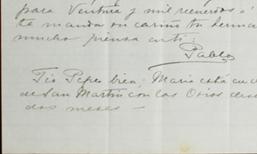 para Ventura y mil recuerdos á
te manda un cariño tu herma
mucho piensa en ti.
Pablo
Tio Pepe bien. Maria está
de San Martin con los Orios desde
dos meses —